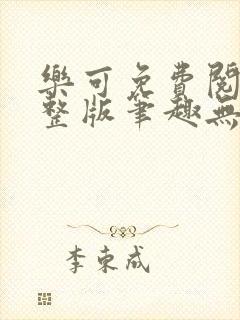 樂可免費閱
整版筆趣無
李東成